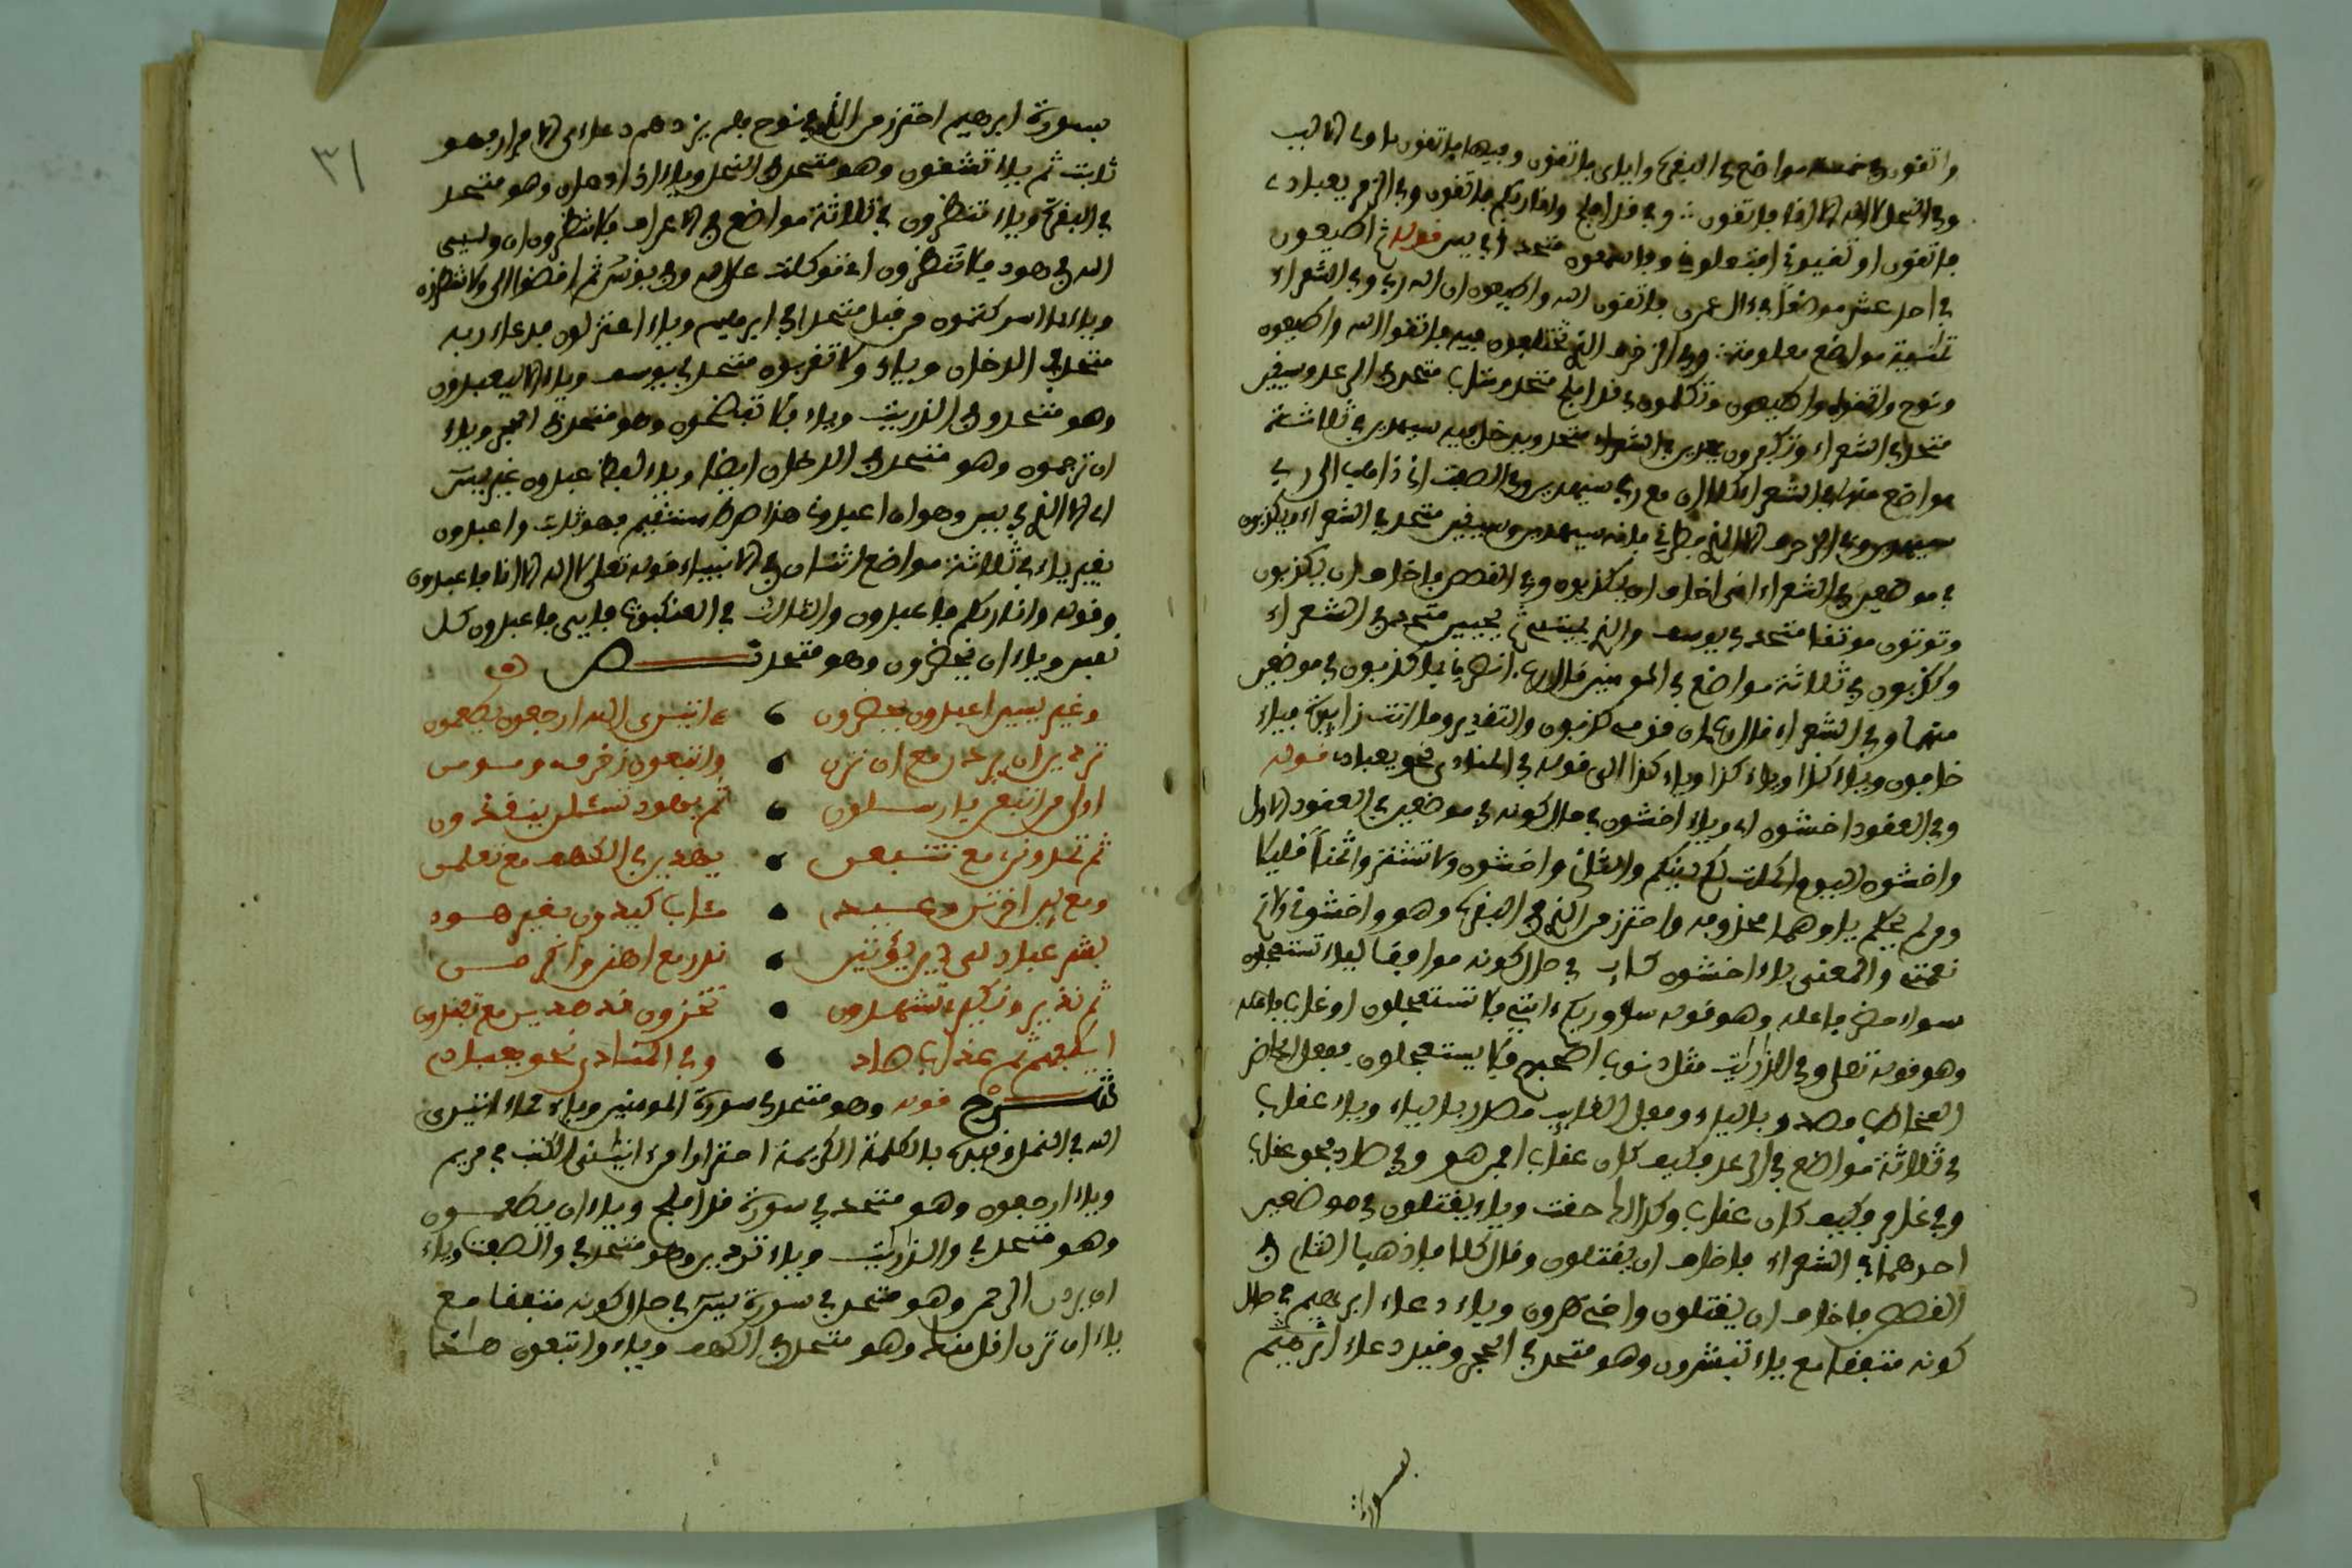 واتقون في خمسة مواضع في البقرة وايلى فاتقون وفيها فاتقون ياولى الالبب
وفي النحل لا اله الا انا فاتقون وفي قد افلح وانا ربكم فاتقون وفي الزمر يعباد
فاتقون او تغيرى قوله ثم اطيعون
في احد عشر موضعا في ال عمرن فاتقوا الله واطيعون ان الله ربي وفي الشعراء
ثمنية مواضع معلومة وفي الزخرف الذي تختلفون فيه فاتقوا الله واطيعون
ونوح واتقوه واطيعون وتكلمون في قد افلح متحد ومتاب متحد في الرعد ويسقين
متحد في الشعراء سيهدين في ثلاثة
مواضع منها في الشعراء كلا ان معي ربي سيهدين وفي الصفت اني ذاهب الى ربي
سيهدين وفي الزخرف الا الذي فطرني فانه سيهدين ويسقين متحد في الشعراء ويكذبون
في موضعين في الشعراء اني اخاف ان يكذبون وفي القصص فاخاف ان يكذبون
وتوتون موثقا متحد في يوسف والذي يميتني ثم يحيين متحد في الشعراء
وكذبون في ثلاثة مواضع في المومنين قال رب انصرني بما كذبون في موضعين
منها وفي الشعراء قال رب ان قومي كذبون والتقدير وما انت زايدة فياء
خافون وياء كذا وياء كذا الى قوله في المنادى نحو يعباد قوله
وفي العقود اخشون اي وياء اخشون في حال كونه في موضعين في العقود الاول
واخشون اليوم اكملت لكم دينكم والثاني واخشون ولا تشتروا ثمنا قليلا
ومن لم يحكم ياوهما محذوفة واحترز من الذي في البقرة وهو واخشوني ولاتم
نعمتي والمعنى ياء اخشون كاين في حال كونه موافقا لياء تستعجلون
سواء وهو قوله ساوريكم ءايتي فلا تستعجلون
وهو قوله تعلى وفي الذاريت مثل ذنوب اصحبهم فلا يستعجلون
المخاطب مصدر بالتاء وفعل الغايب مصدر بالياء وياء عقاب
في ثلاثة مواضع في الرعد فكيف كان عقاب افمن هو وفي صاد فحق عقاب
وفي غافر فكيف كان عقاب وكذلك حقت وياء يقتلون في موضعين
احدهما في الشعراء فاخاف ان يقتلون وقال كلا فاذهبا الثاني في
القصص فاخاف ان يقتلون واخي هرون وياء دعاء ابرهيم في حال
كونه متفقا مع ياء تبشرون وهو متحد في الحجر وقيد دعاء ابرهيم
بسورة
٣١
بسورة ابرهيم احترز من الذي في نوح فلم يزدهم دعاءي الا فرارا فهو
ثابت ثم ياء تشقون وهو متحد في النحل وياء الداع اذا دعان وهو متحد
في البقرة وياء تنظرون في ثلاثة مواضع في الاعراف فلا تنظرون ان وليي
الله في هود فلا تنظرون اني توكلت على الله وفي يونس ثم اقضوا الي ولا تنظرون
وياء بما اشركتمون من قبل متحد في ابرهيم وياء اعتزلون فدعا ربه
متحد في الدخان وياء ولا تقربون متحد في يوسف وياء الا ليعبدون
وهو متحد في الذريت وياء فلا تفضحون وهو متحد في الحجر وياء
ان ترجمون وهو متحد في الدخان ايضا وياء لفظ اعبدون غير يس
اي الا الذي في يس وهو ان اعبدوني هذا صرط مستقيم فهو ثابت واعبدون
بغير ياء في ثلاثة مواضع اثنان في الانبياء قوله تعلى لا اله الا انا فاعبدون
وقوله وانا ربكم فاعبدون والثالث في العنكبوت فايى فاعبدون كل
نفس وياء ان يحضرون وهو متحد نص
وغير يسن اعبدون يحضرون ءاتين ي الله ارجعون يطعمون
تردين ان يردن مع ان ترن واتبعون زخرف ومومن
اولى من اتبعن يا رسلون ثم بهود تسئلن ينقذون
ثم تمدونن مع تتبعن يهدين في الكهف مع تعلمن
ومع لين اخرتن وعيد متاب كيدون بغير هود
بشر عباد لي دين يوتين نذر مع اهنن واكرمن
ثم نذير ونكير تشهدون تخزون قد هدين مع تفندون
اشركتم ثم عذاب هاد وفي المنادى نحو يعباد
شرح قوله وهو متحد في سورة المومنين وياء فما ءاتين ي
الله في النمل وقيده بالكلمة الكريمة احترازا من ءاتيني الكتب في مريم
وياء ارجعون وهو متحد في سورة قد افلح وياء ان يطعمون
وهو متحد في والذريت وياء تردين وهو متحد في والصفت وياء
ان يردن الرحمن وهو متحد في سورة يس في حال كونه متفقا مع
ياء ان ترن اقل منك وهو متحد في الكهف وياء واتبعون هذا